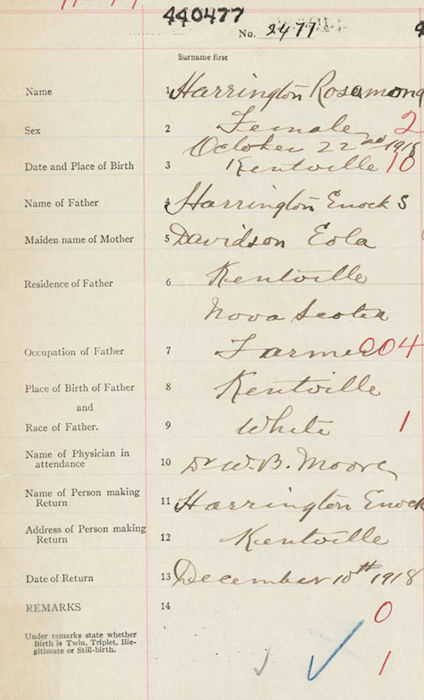 440477
No. 2477
Surname first
Name 1 Harrington Rosamond
Sex 2 Female 2
October 22nd 1918
Date and Place of Birth 3 Kentville 10
Name of Father 4 Harrington Enock S
Maiden name of Mother 5 Davidson Eola
Residence of Father 6 Kentville
Nova Scotia
Occupation of Father 7 Farmer 204
Place of Birth of Father 8 Kentville
and
Race of Father. 9 White 1
Name of Physician in
attendance 10 Dr W. B. Moore
Name of Person making
Return 11 Harrington Enock
Address of Person making
Return 12 Kentville
Date of Return 13 December 10th 1918
REMARKS 14 0
Under remarks state whether
Birth is Twin, Triplet, Ille-
gitimate or Still-birth. 1